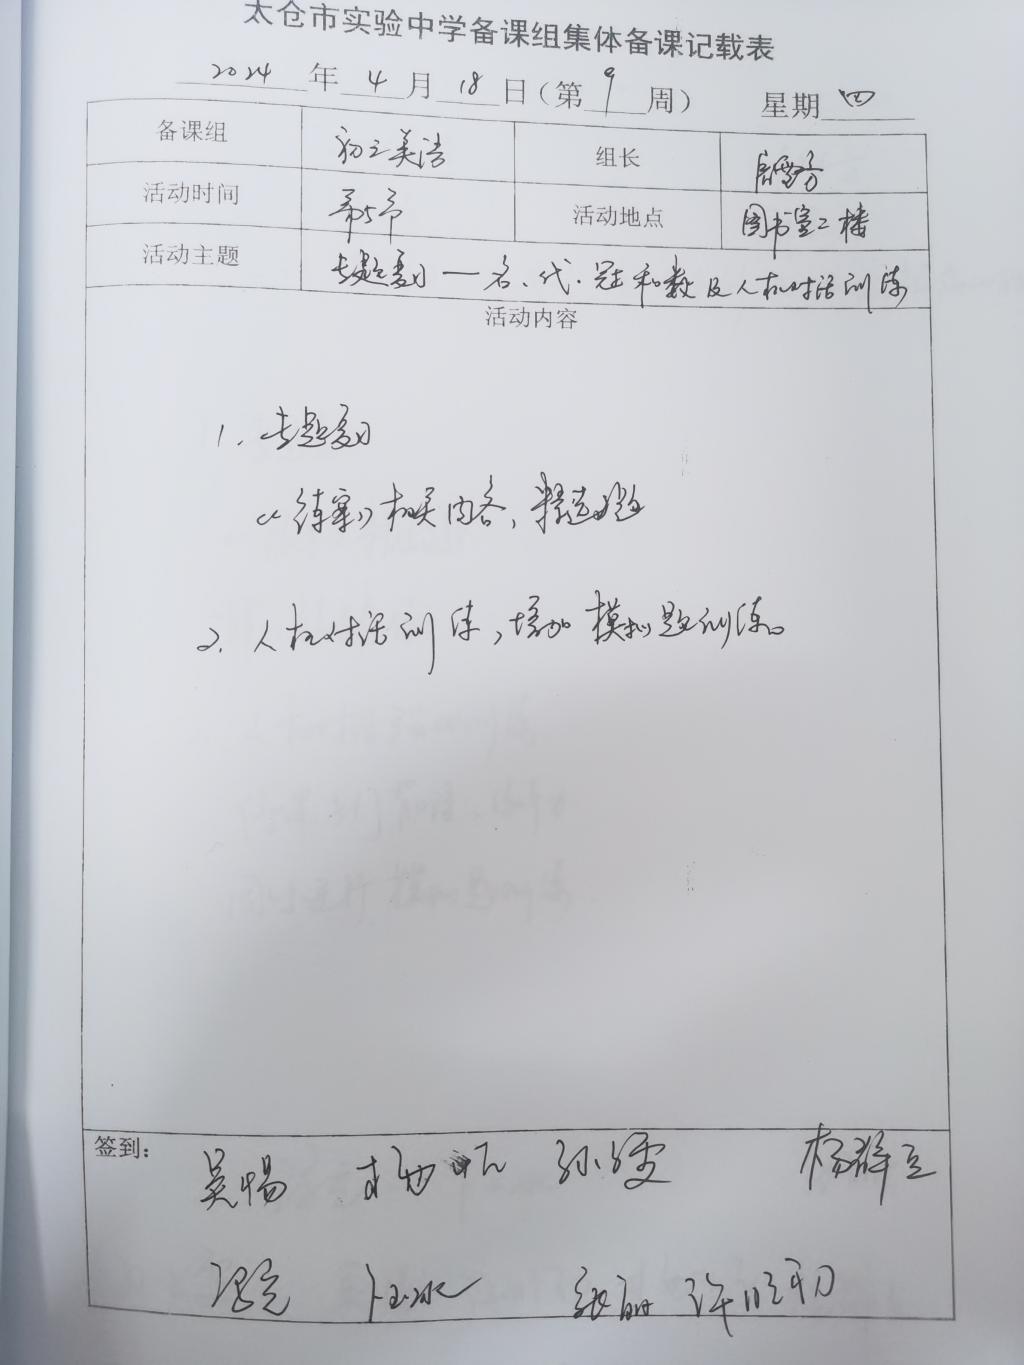 太仓市实验中学备课组集体备课记载表
2024 年 4 月 18 日（第 9 周） 星期 四
备课组 初三英语 组长
活动时间 第5节 活动地点 图书室二楼
活动主题 专题复习 — 名、代、冠和数及人机对话训练
活动内容
1. 专题复习
《练案》相关内容，精选题
2. 人机对话训练，增加模拟题训练。
签到：
吴畅 杨 孙雯 杨群立
张丽